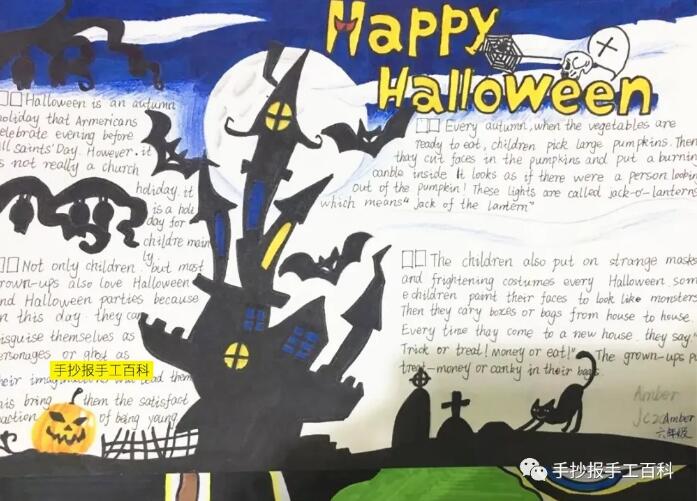 Happy
Halloween
Halloween is an autumn
holiday that Armericans
celebrate evening before
all saints' Day. However, it
is not really a church
holiday. it
is a holi
day for
childre main
ly.
Not only children. but most
grown-ups also love Halloween
and Halloween parties because
on this day. they can
disguise themselves as
personages or ghost as
their them
this bring them the satisfact
of being young
Every autumn, when the vegetables are
ready to eat, children pick large pumpkins. Then
they cut faces in the pumpkins and put a burnin
canble inside It looks as if there were a person looking
out of the pumpkin! These lights are called jack-o'-lantern
which means" Jack of the lantern"
The children also put on strange masks
and frightening costumes every Halloween. som
e children paint their faces to look like monster
Then they cary boxes or bags from house to house.
Every time thay come to a new house. they say."
Trick or treat! Money or eat!" The grown-ups p
treat-money or canky in their bags.
手抄报手工百科
Amber
Amber
六年级
手抄报手工百科